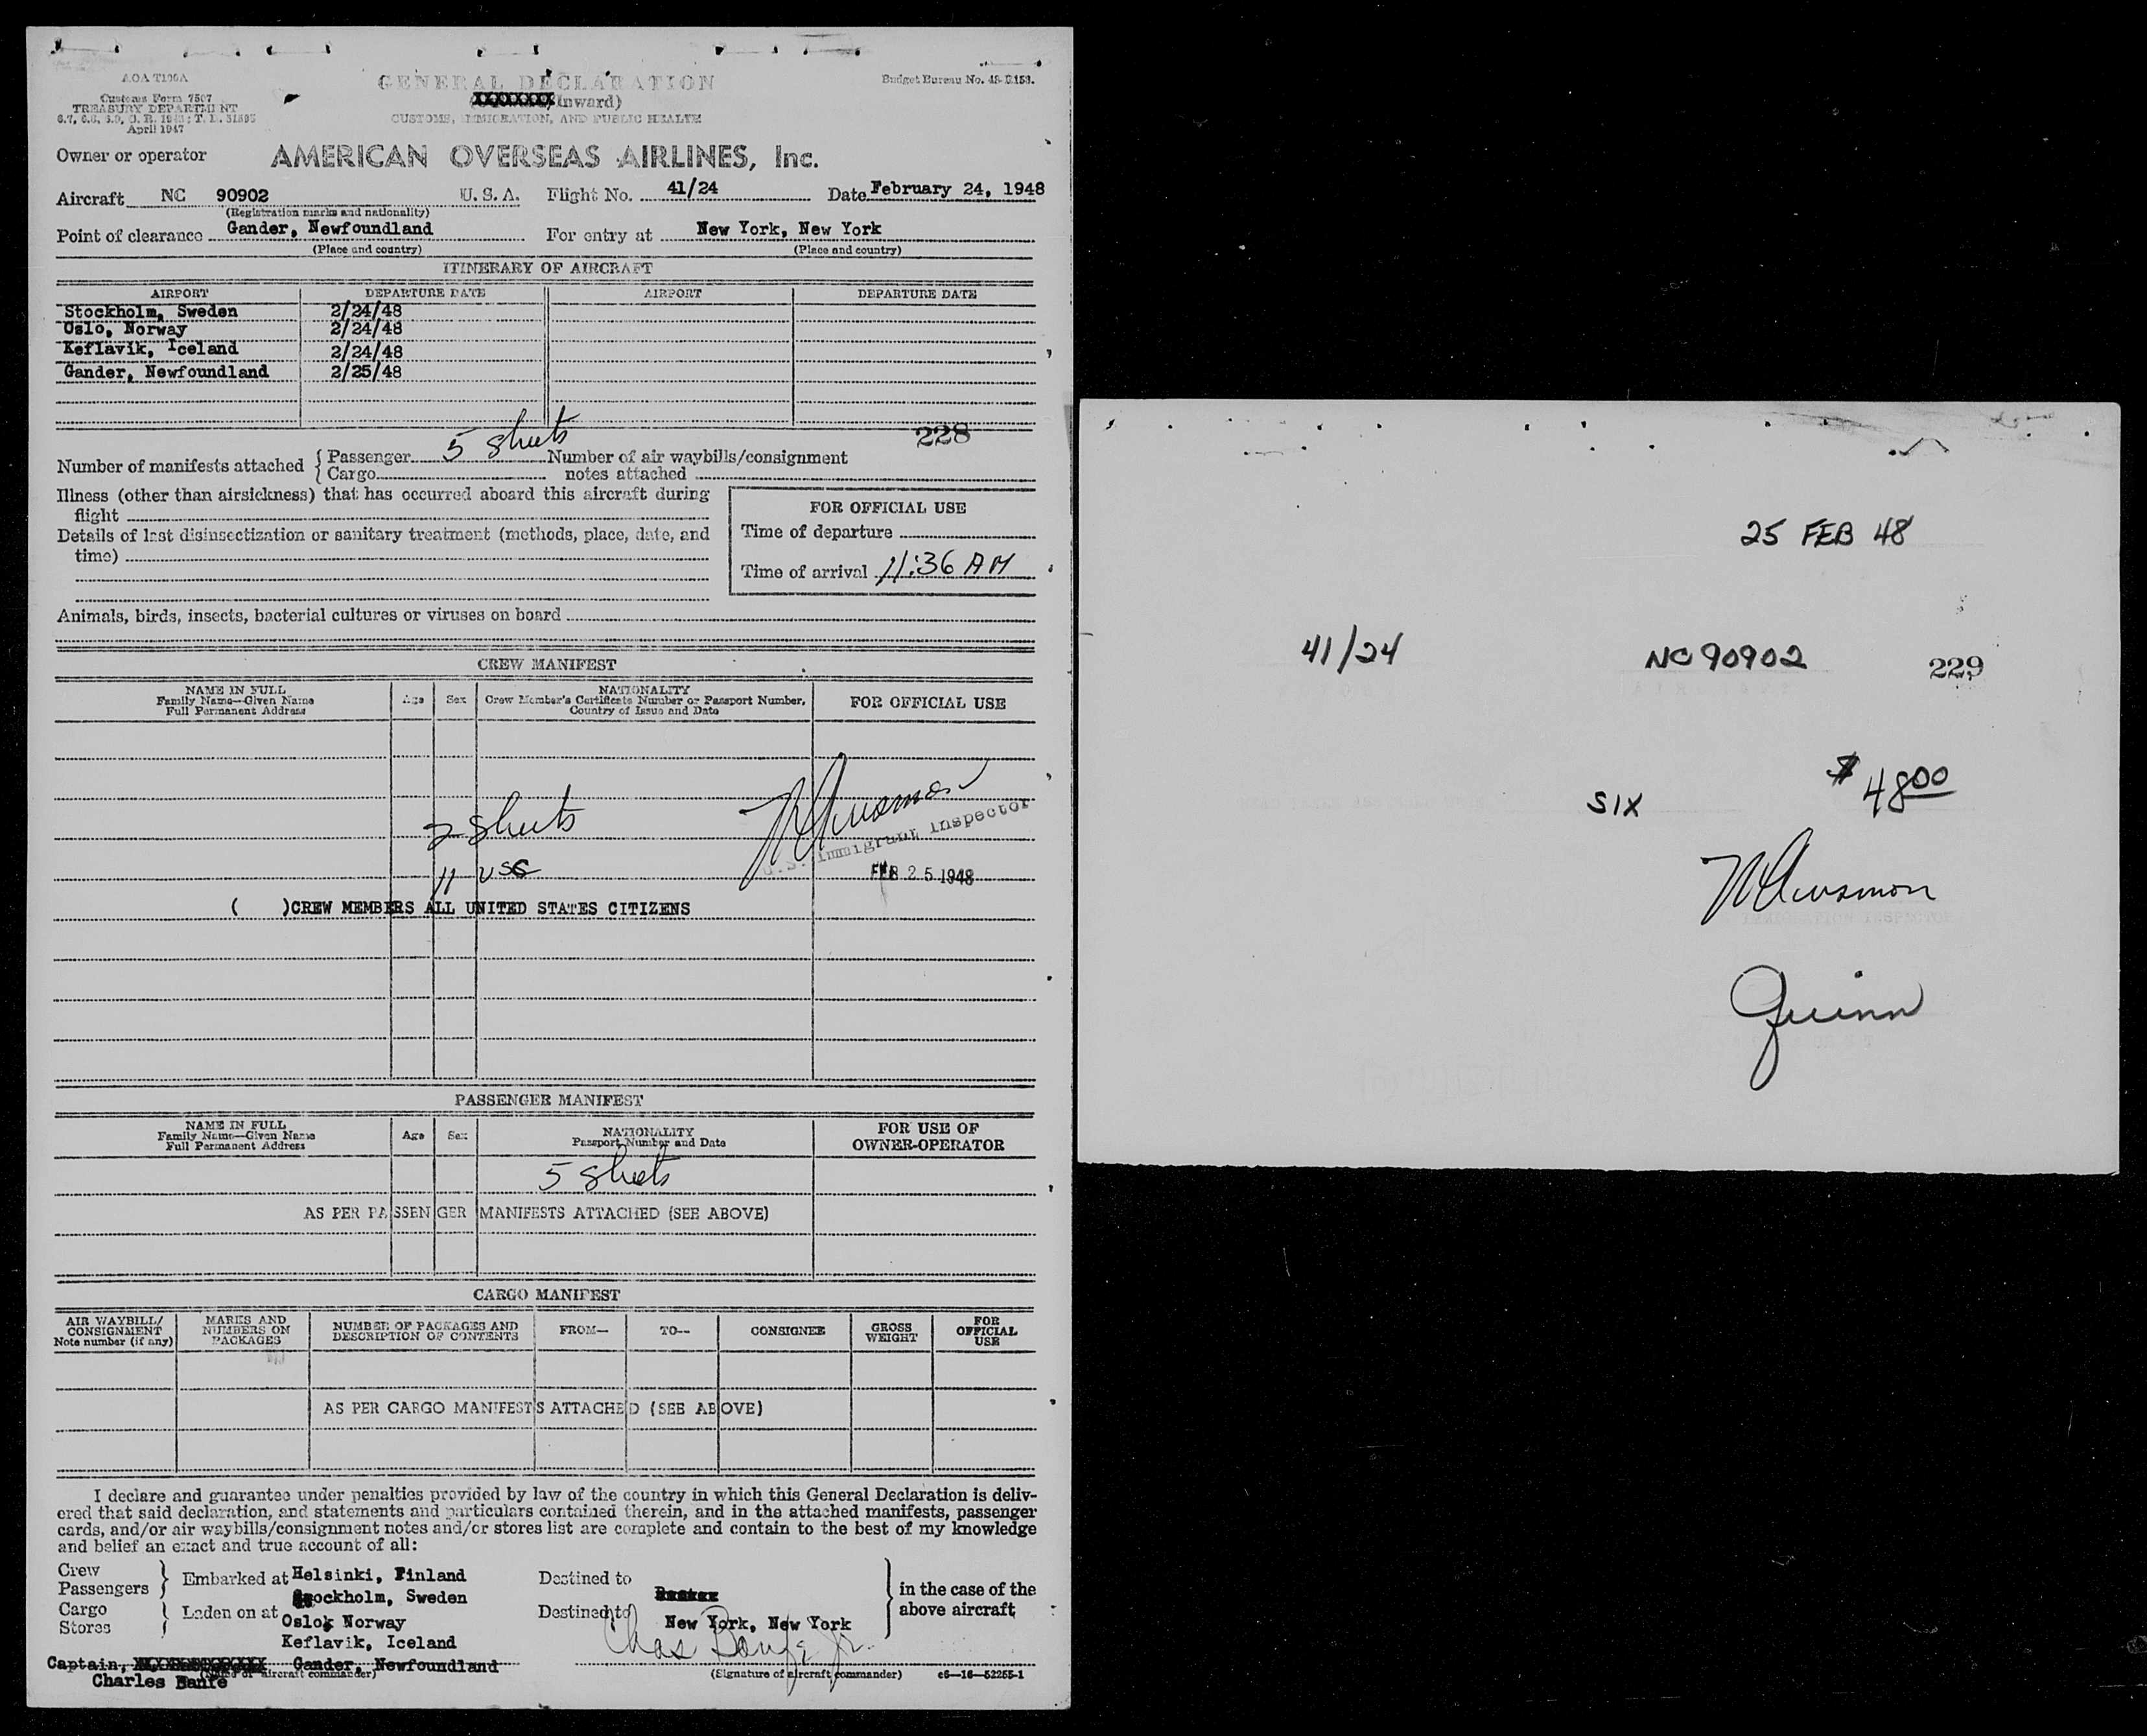 AOA T100A
Customs Form 7507
TREASURY DEPARTMENT
April 1947
GENERAL DECLARATION
Inward)
CUSTOMS, IMMIGRATION, AND PUBLIC HEALTH
Budget Bureau No.
Owner or operator AMERICAN OVERSEAS AIRLINES, Inc.
Aircraft NC 90902 U. S. A. Flight No. 41/24 Date February 24, 1948
(Registration marks and nationality)
Point of clearance Gander, Newfoundland For entry at New York, New York
(Place and country) (Place and country)
ITINERARY OF AIRCRAFT
AIRPORT DEPARTURE DATE AIRPORT DEPARTURE DATE
Stockholm, Sweden 2/24/48
Oslo, Norway 2/24/48
Keflavik, Iceland 2/24/48
Gander, Newfoundland 2/25/48
228
Number of manifests attached { Passenger 5 sheets Number of air waybills/consignment
{ Cargo notes attached
Illness (other than airsickness) that has occurred aboard this aircraft during
flight
Details of last disinsectization or sanitary treatment (methods, place, date, and
time)
FOR OFFICIAL USE
Time of departure
Time of arrival 11:36 AM
Animals, birds, insects, bacterial cultures or viruses on board
CREW MANIFEST
NAME IN FULL
Family Name—Given Name
Full Permanent Address
Age Sex
NATIONALITY
Crew Member's Certificate Number or Passport Number,
Country of Issue and Date
FOR OFFICIAL USE
2 sheets
U.S. Immigrant Inspector
11 USC
FEB 25 1948
( )CREW MEMBERS ALL UNITED STATES CITIZENS
PASSENGER MANIFEST
NAME IN FULL
Family Name—Given Name
Full Permanent Address
Age Sex
NATIONALITY
Passport Number and Date
FOR USE OF
OWNER-OPERATOR
5 sheets
AS PER PASSENGER MANIFESTS ATTACHED (SEE ABOVE)
CARGO MANIFEST
AIR WAYBILL/
CONSIGNMENT
Note number (if any)
MARKS AND
NUMBERS ON
PACKAGES
NUMBER OF PACKAGES AND
DESCRIPTION OF CONTENTS
FROM—
TO—
CONSIGNEE
GROSS
WEIGHT
FOR
OFFICIAL
USE
AS PER CARGO MANIFESTS ATTACHED (SEE ABOVE)
I declare and guarantee under penalties provided by law of the country in which this General Declaration is deliv-
ered that said declaration, and statements and particulars contained therein, and in the attached manifests, passenger
cards, and/or air waybills/consignment notes and/or stores list are complete and contain to the best of my knowledge
and belief an exact and true account of all:
Crew
Passengers } Embarked at Helsinki, Finland Destined to
Stockholm, Sweden
Cargo
Stores } Laden on at Oslo, Norway Destined to New York, New York
in the case of the
above aircraft
Keflavik, Iceland
Captain, Gander, Newfoundland
(Name of aircraft commander) (Signature of aircraft commander) c6—16—52255-1
Charles
25 FEB 48
41/24 NC 90902 229
SIX $48.00
Quinn